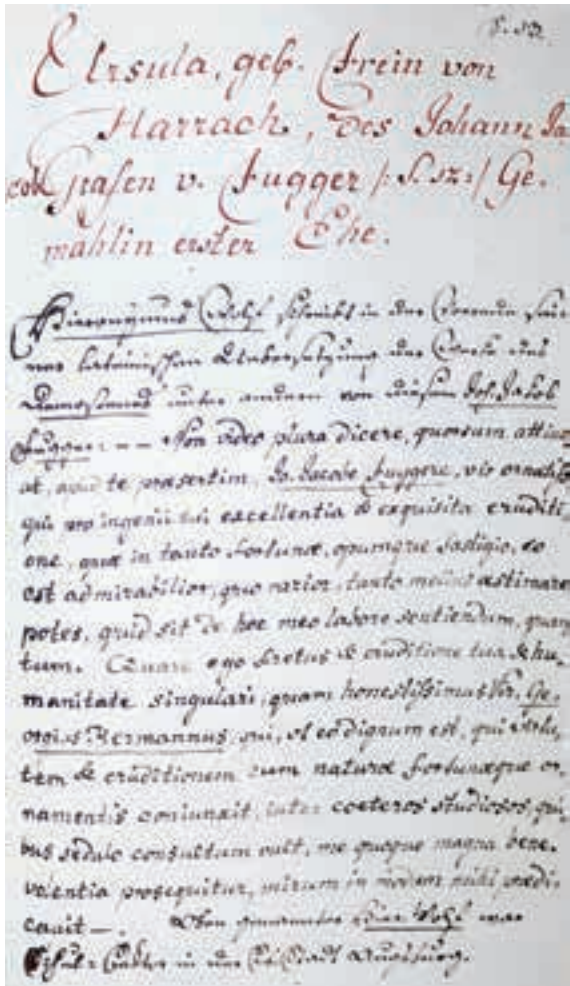 Ursula, geb. Frein von
Harrach, des Johann Ja
cob Grafen v. Fugger /: S. 52 :/ Ge-
mahlin erster Ehe.
Hieronymus Wolf schreibt in der Vorrede sei-
ner lateinischen Uebersetzung der
unter anderen von diesem Joh. Jakob
Fugger — — Non video plura dicere, quorsum attine
at, apud te praesertim, Jo. Jacobe Fuggere, vir ornatiss
qui pro ingenii tui excellentia & exquisita eruditi-
one, quae in tanto fortunae, opumque fastigio, eo
est admirabilior, quo rarior, tanto melius aestimare
potes, quid sit de hoc meo labore sentiendum, quan
tum. Quare ego fretus & eruditione tua & hu-
manitate singulari, quam honestissimus Vir, Ge-
orgius Hermannus, qui, ut eo dignum est, qui virtu
tem & eruditionem cum naturae fortunaeque or-
namentis coniunxit, inter coeteros studiosos, qui-
bus sedulo consultum vult, me quoque magna bene-
volentia prosequitur, mirum in modum mihi praedi-
cavit —. Wolf war
in der Stadt Augsburg.